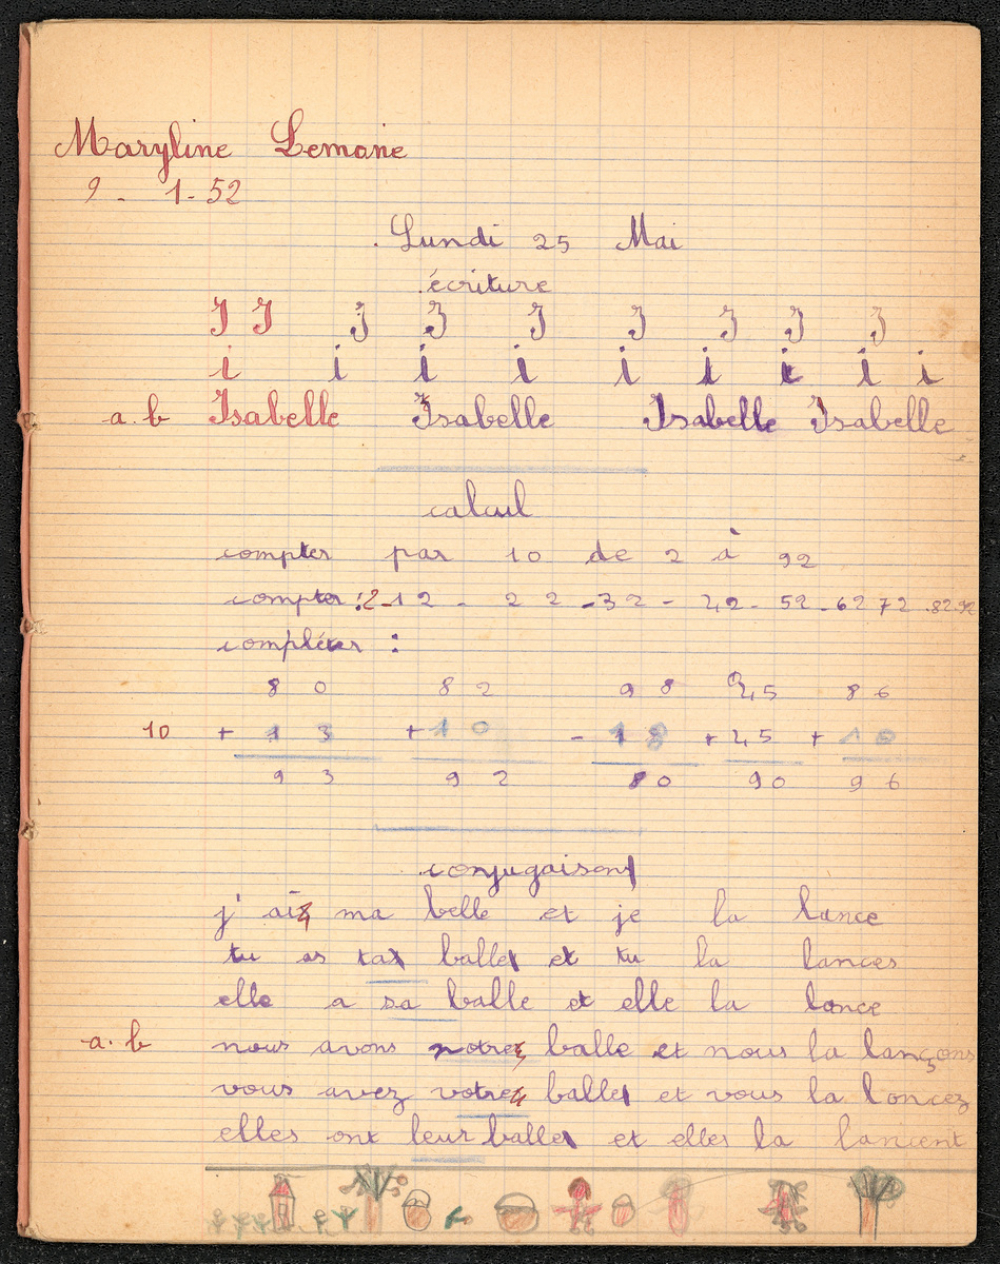 Maryline Lemoine
9 - 1-52
Lundi 25 Mai
écriture
J J J J J J J J J
i i i i i i i i i
a.b Isabelle Isabelle Isabelle Isabelle
calcul
compter par 10 de 2 à 92
compter : 2-12 - 22 - 32 - 42 - 52 - 62 72 - 82-92
compléter :
80 82 98 45 86
10 + 13 + 10 - 18 + 45 + 10
93 92 80 90 96
conjugaison
j' ai ma balle et je la lance
tu as ta balle et tu la lances
elle a sa balle et elle la lance
a.b nous avons notre balle et nous la lançons
vous avez votre balle et vous la lancez
elles ont leur balle et elles la lancent